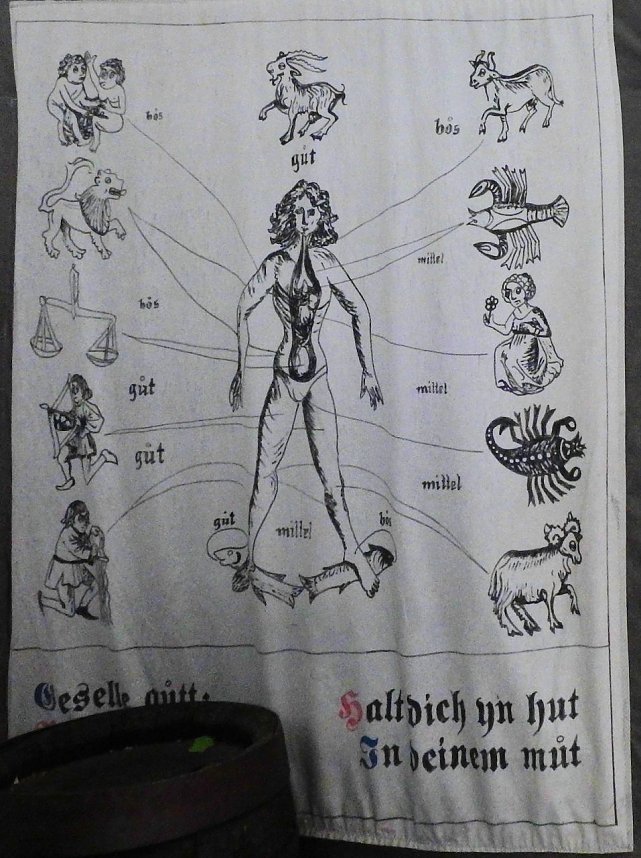 bös
gůt
bös
mittel
bös
gůt
mittel
gůt
mittel
gůt
mittel
bös
Geselle gůtt.
Halt dich yn hut
In deinem můt